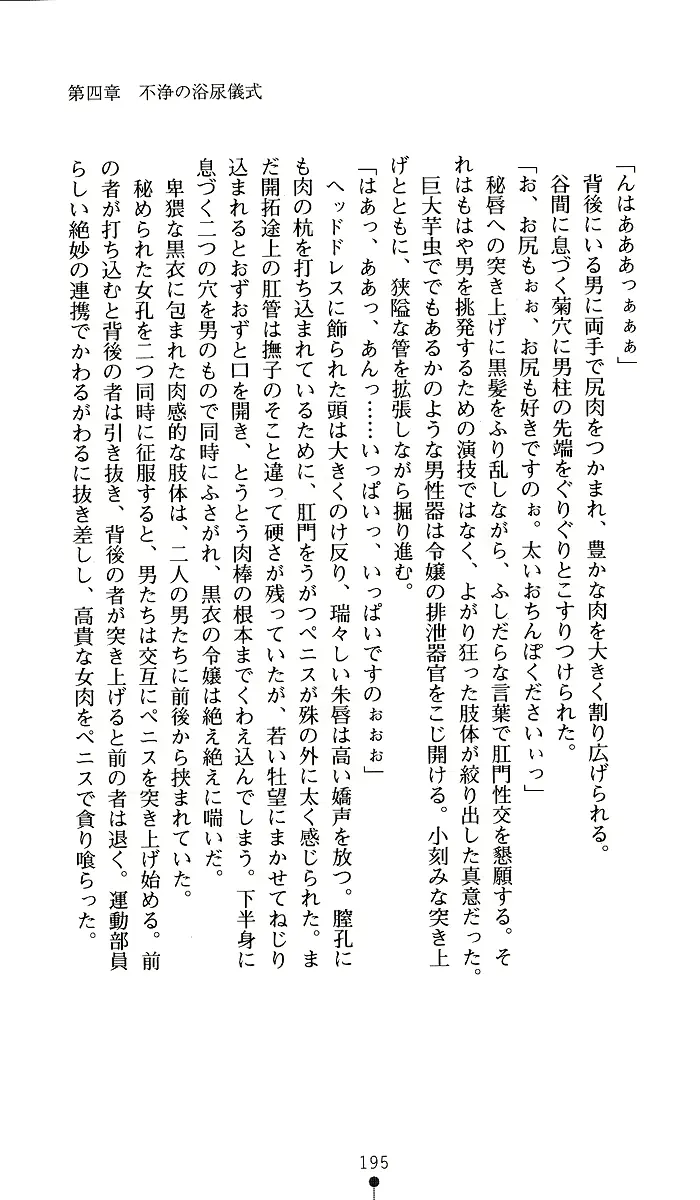 第四章　不浄の浴尿儀式
「んはあああっぁぁぁ」
背後にいる男に両手で尻肉をつかまれ、豊かな肉を大きく割り広げられる。
谷間に息づく菊穴に男柱の先端をぐりぐりとこすりつけられた。
「お、お尻もぉぉ、お尻も好きですのぉ。太いおちんぽくださいぃっ」
秘唇への突き上げに黒髪をふり乱しながら、ふしだらな言葉で肛門性交を懇願する。そ
れはもはや男を挑発するための演技ではなく、よがり狂った肢体が絞り出した真意だった。
巨大芋虫ででもあるかのような男性器は令嬢の排泄器官をこじ開ける。小刻みな突き上
げとともに、狭隘な管を拡張しながら掘り進む。
「はあっ、ああっ、あんっ……いっぱいっ、いっぱいですのぉぉぉ」
ヘッドドレスに飾られた頭は大きくのけ反り、瑞々しい朱唇は高い嬌声を放つ。膣孔に
も肉の杭を打ち込まれているために、肛門をうがつペニスが殊の外に太く感じられた。ま
だ開拓途上の肛管は撫子のそこと違って硬さが残っていたが、若い牡望にまかせてねじり
込まれるとおずおずと口を開き、とうとう肉棒の根本までくわえ込んでしまう。下半身に
息づく二つの穴を男のもので同時にふさがれ、黒衣の令嬢は絶え絶えに喘いだ。
卑猥な黒衣に包まれた肉感的な肢体は、二人の男たちに前後から挟まれていた。
秘められた女孔を二つ同時に征服すると、男たちは交互にペニスを突き上げ始める。前
の者が打ち込むと背後の者は引き抜き、背後の者が突き上げると前の者は退く。運動部員
らしい絶妙の連携でかわるがわるに抜き差しし、高貴な女肉をペニスで貪り喰らった。
195